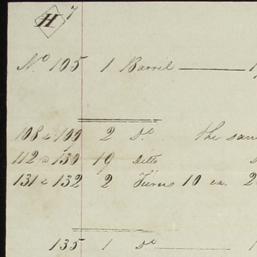 H 7
No 105 1 Barrel
108 a 109 2 do the sam
112 a 130 19 ditto
131 a 132 2 10 ea. 2
135 1 do 1